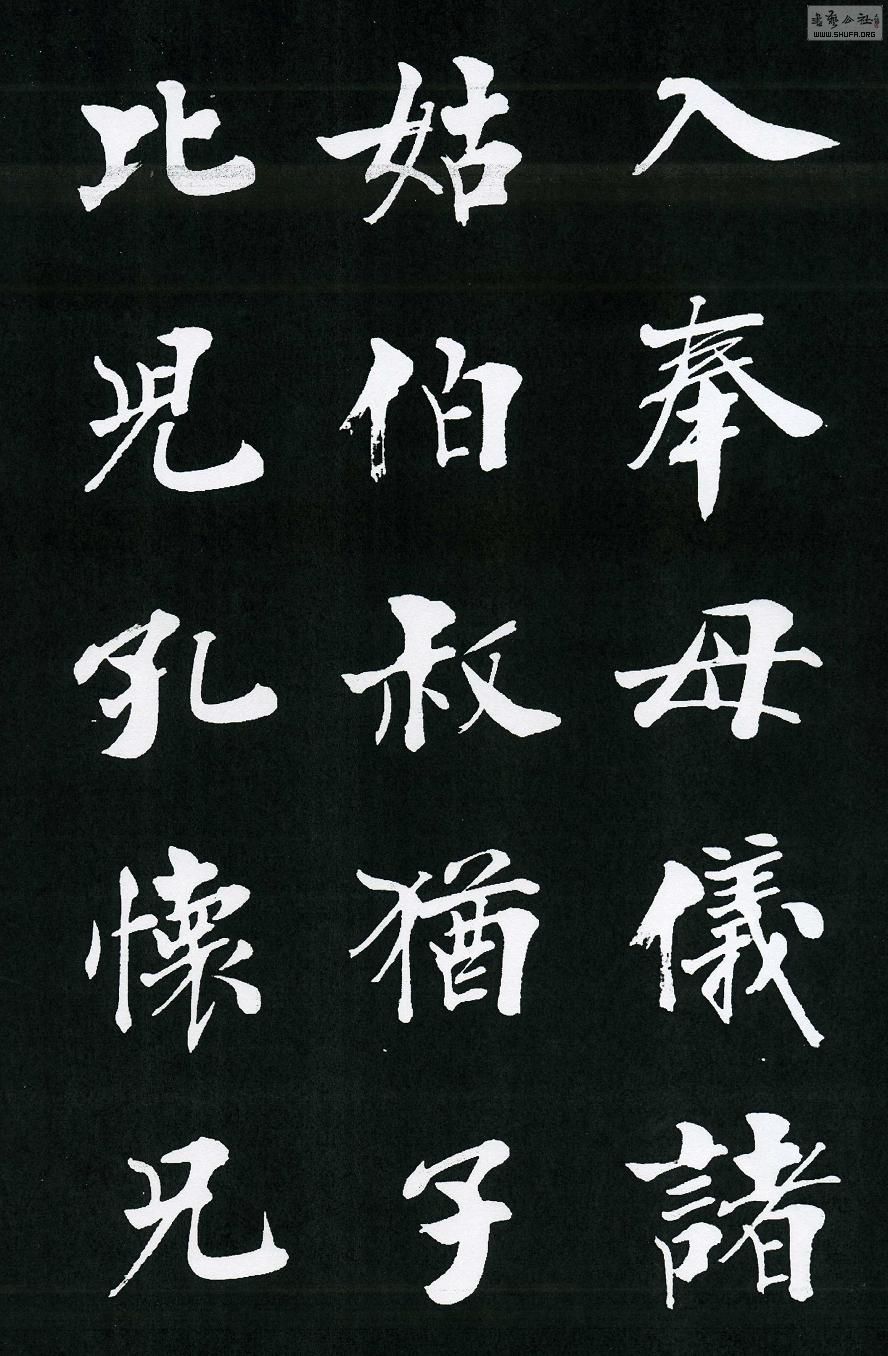 入奉母儀諸
姑伯叔猶子
比兒孔懷兄
WWW.SHUFA.ORG